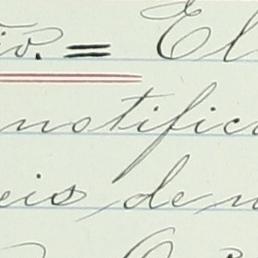 io. = El
notific
eis de n